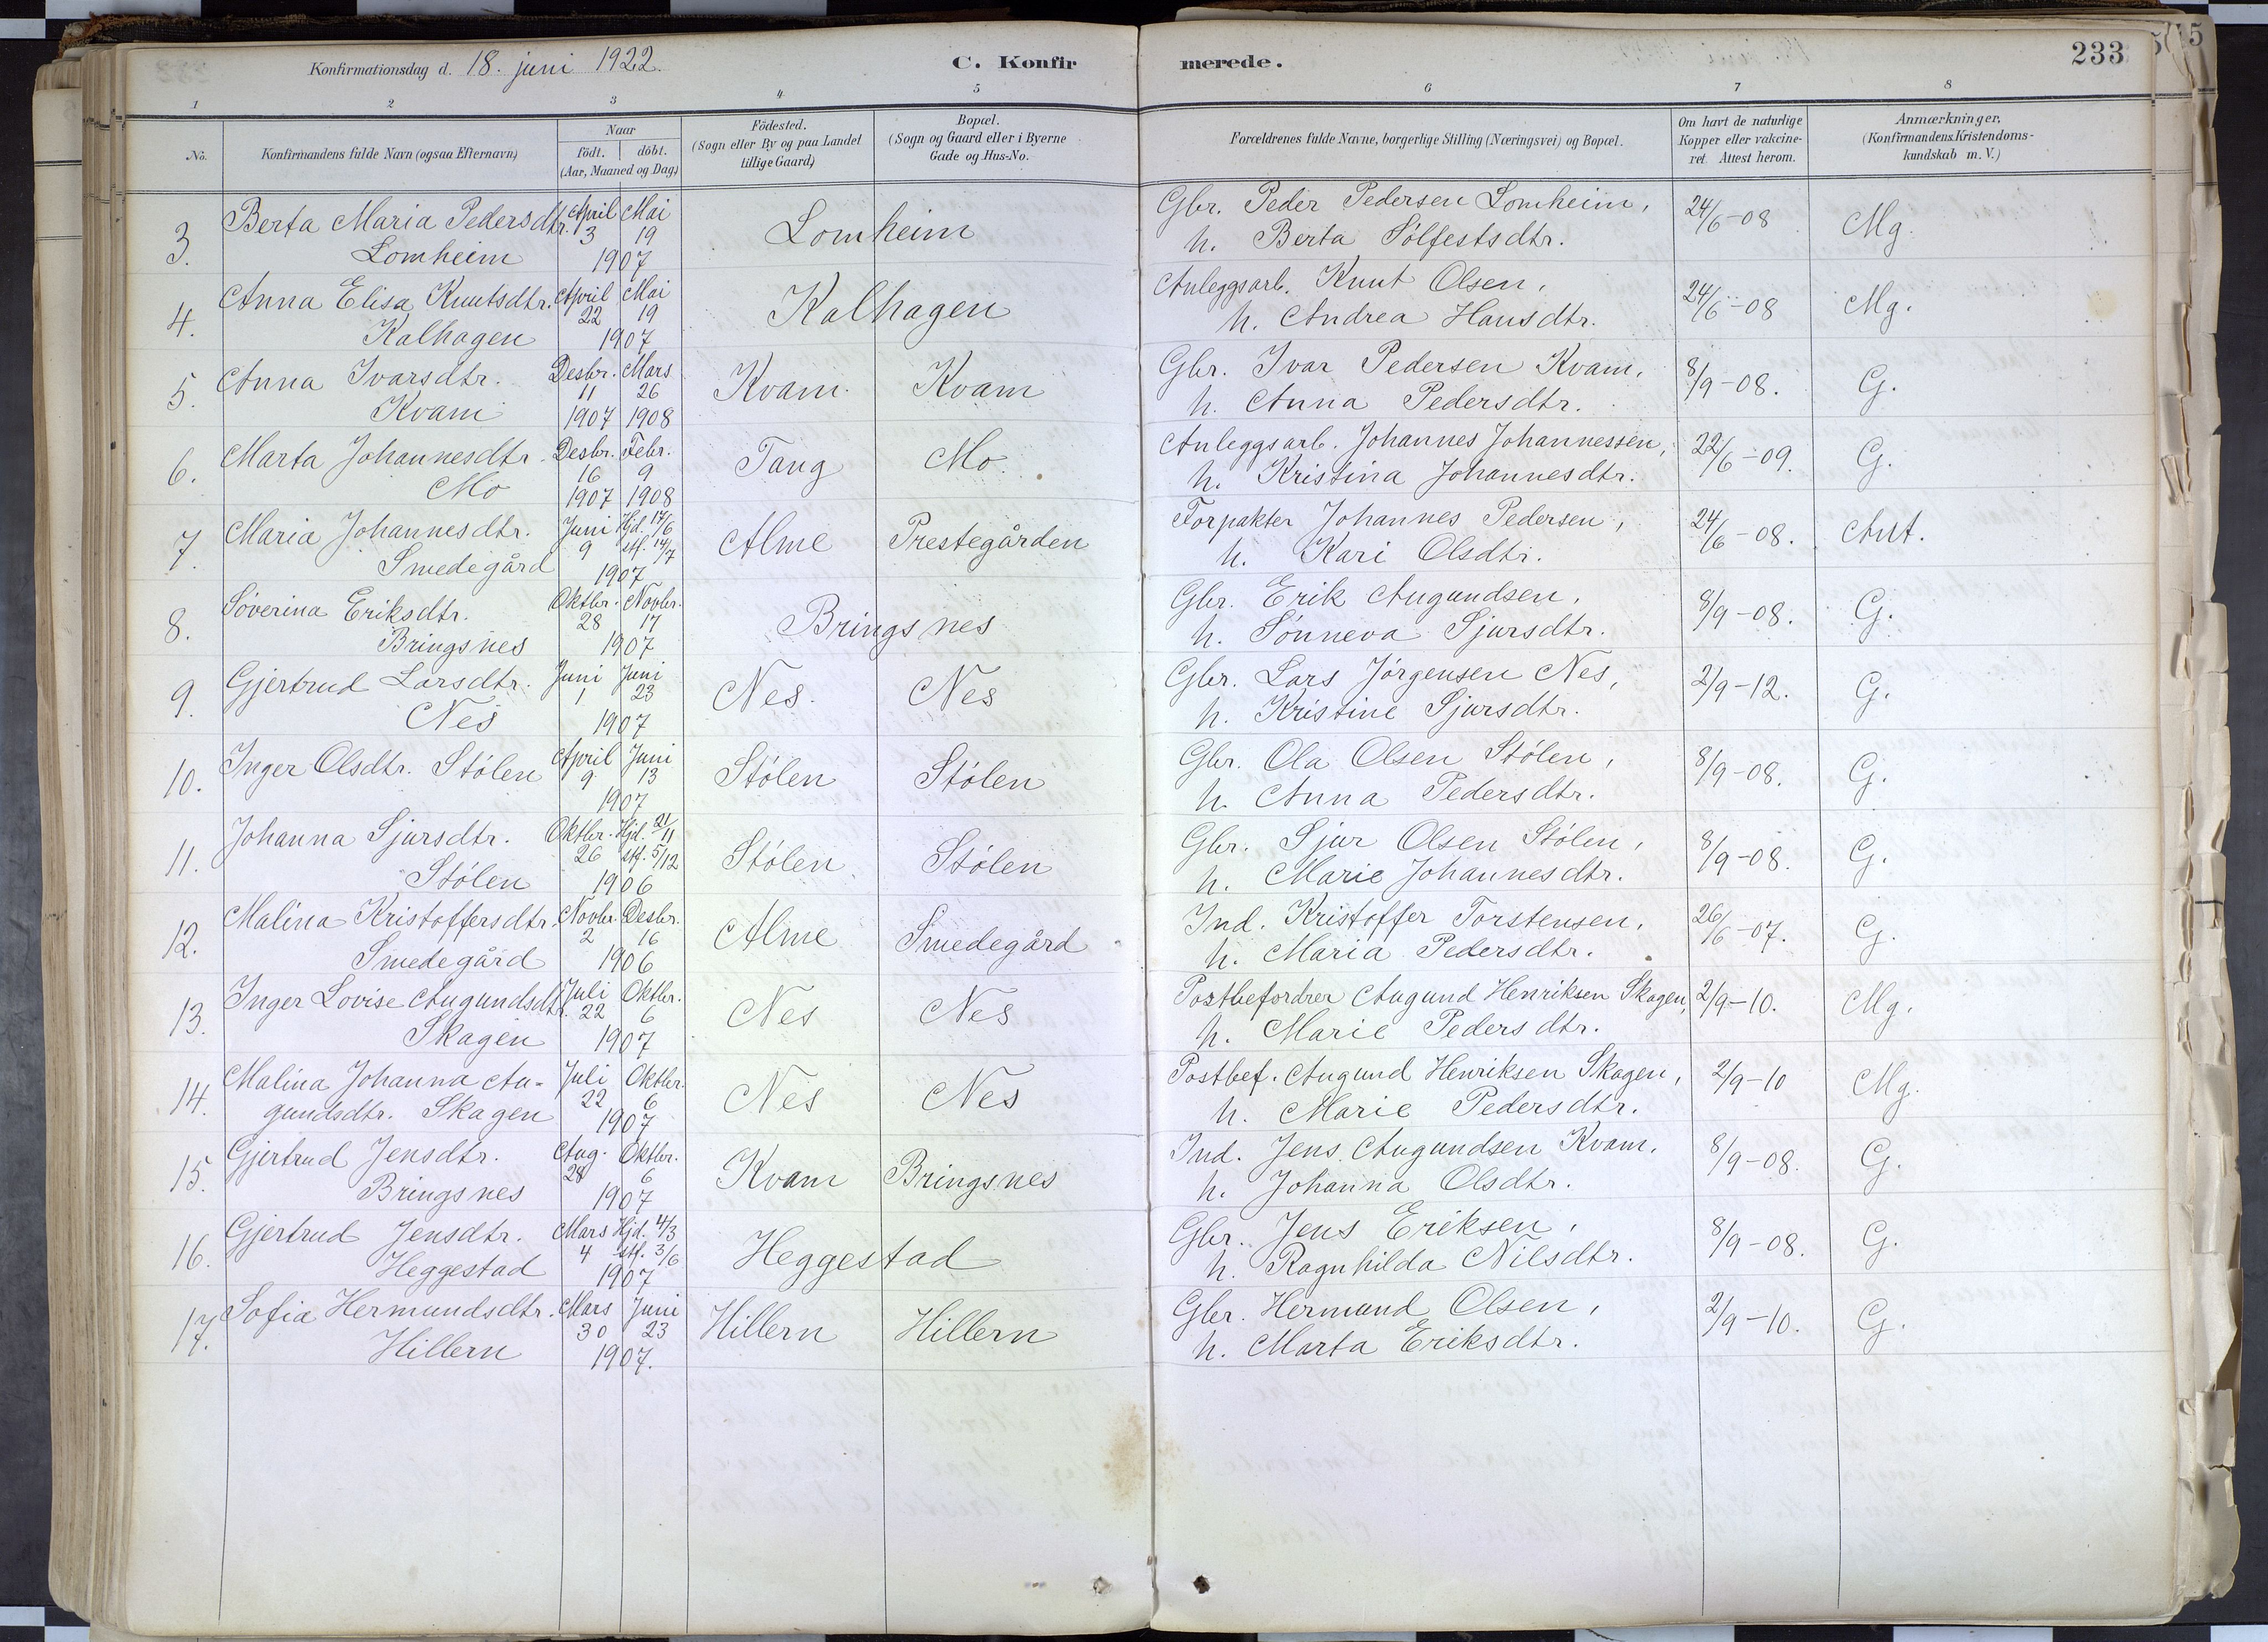 Konfirmationsdag d. 18. juni 1922.
C. Konfirmerede.
233
1 2 3 4 5 6 7 8
No.
Konfirmandens fulde Navn (ogsaa Efternavn)
Naar
født. døbt.
(Aar, Maaned og Dag)
Fødested.
(Sogn eller By og paa Landet
tillige Gaard)
Bopæl.
(Sogn og Gaard eller i Byerne
Gade og Hus-No.
Forældrenes fulde Navne, borgerlige Stilling (Næringsvei) og Bopæl.
Om havt de naturlige
Kopper eller vakcine-
ret. Attest herom.
Anmærkninger,
(Konfirmandens Kristendoms-
kundskab m. V.)
3. Berta Maria Pedersdtr. April Mai Lomheim Gbr. Peder Pedersen Lomheim, 24/6-08 Mg.
Lomheim 3 19 1907 h. Berta Sølfestsdtr.
4. Anna Elisa Knutsdtr. April Mai Kalhagen Anleggsarb. Knut Olsen, 24/6-08 Mg.
Kalhagen 22 19 1907 h. Andrea Hansdtr.
5. Anna Ivarsdtr. Desbr. Mars Kvam Kvam Gbr. Ivar Pedersen Kvam, 8/9-08. G.
Kvam 11 26 1907 1908 h. Anna Pedersdtr.
6. Marta Johannesdtr. Desbr. Febr. Tang Mo Anleggsarb. Johannes Johannessen, 22/6-09. G.
Mo 16 9 1907 1908 h. Kristina Johannesdtr.
7. Maria Johannesdtr. Juni Hjd. 17/6 Alme Prestegården Forpakter Johannes Pedersen, 24/6-08. Ant.
Smedegård 9 stf. 14/7 1907 h. Kari Olsdtr.
8. Søverina Eriksdtr. Oktbr. Novbr. Bringsnes Gbr. Erik Augundsen, 8/9-08. G.
Bringsnes 28 17 1907 h. Sønneva Sjursdtr.
9. Gjertrud Larsdtr. Juni Juni Nes. Nes Gbr. Lars Jørgensen Nes, 2/9-12. G.
Nes 1 23 1907 h. Kristine Sjursdtr.
10. Inger Olsdtr. Stølen April Juni Stølen Stølen Gbr. Ola Olsen Stølen, 8/9-08. G.
9 13 1907 h. Anna Pedersdtr.
11. Johanna Sjursdtr. Oktbr. Hjd. 21/11 Stølen Stølen Gbr. Sjur Olsen Stølen, 8/9-08. G.
Stølen 26 stf. 5/12 1906 h. Marie Johannesdtr.
12. Malina Kristoffersdtr. Novbr. Desbr. Alme Smedegård Ind. Kristoffer Torstensen, 26/6-07. G.
Smedegård 2 16 1906 h. Maria Pedersdtr.
13. Inger Lovise Augundsdtr. Juli Oktbr. Nes Nes Postbefordrer Augund Henriksen Skagen, 2/9-10. Mg.
Skagen 22 6 1907 h. Marie Pedersdtr.
14. Malina Johanna Au- Juli Oktbr. Nes Nes Postbef. Augund Henriksen Skagen, 2/9-10 Mg.
gundsdtr. Skagen 22 6 1907 h. Marie Pedersdtr.
15. Gjertrud Jensdtr. Aug. Oktbr. Kvam Bringsnes Ind. Jens Augundsen Kvam, 8/9-08. G.
Bringsnes 28 6 1907 h. Johanna Olsdtr.
16. Gjertrud Jensdtr. Mars Hjd. 4/3 Heggestad Gbr. Jens Eriksen, 8/9-08. G.
Heggestad 4 stf. 3/6 1907 h. Ragnhilda Nilsdtr.
17. Sofia Hermundsdtr. Mars Juni Hillern Hillern Gbr. Hermund Olsen, 2/9-10. G.
Hillern 30 23 1907. h. Marta Eriksdtr.